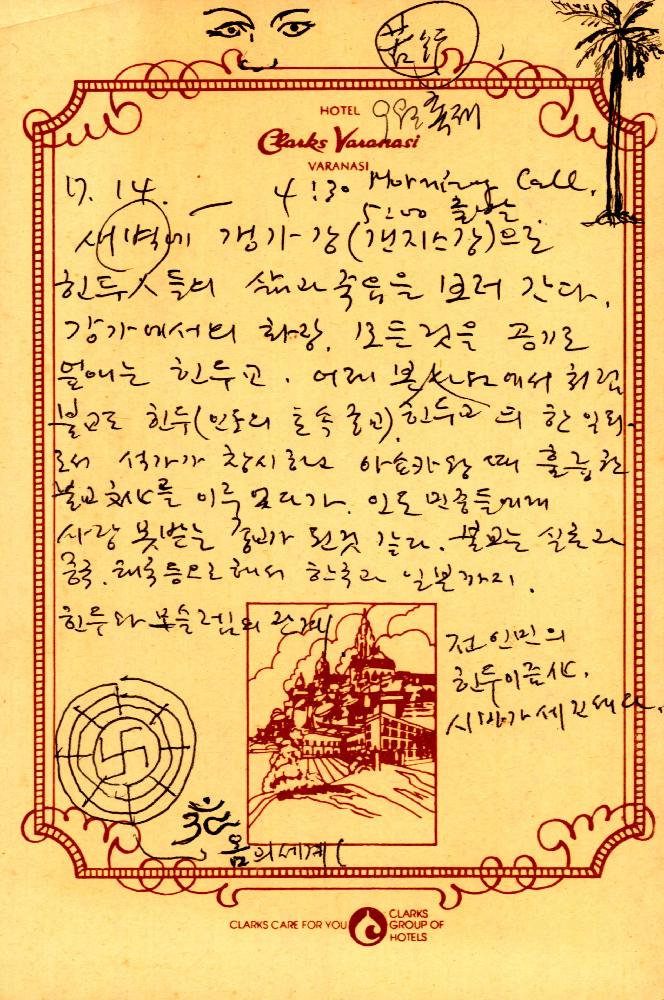 苦行
HOTEL
Clarks Varanasi
VARANASI
축제
17. 14. 4:30 Morning Call.
5:00 출발.
새벽에 갠가-강(갠지스강)으로
힌두人들의 삶과 죽음을 보러 간다.
강가에서의 화장. 모든 것을 공기로
힌두교.
불교도 힌두(인도의 토속종교). 힌두교의 한
로서 석가가 창시하고 아쇼카왕 때 훌륭한
불교文化를 이루었다가. 인도 민중들에게
사랑 못받는 종교가 된것 같다. 불교는 실론과
중국. 태국등으로 해서 한국과 일본까지.
힌두와 모슬레임의 관계
전 인민의
힌두이즘化.
시바가 세 긴데다.
ॐ
옴의 세계(
CLARKS CARE FOR YOU
CLARKS
GROUP OF
HOTELS